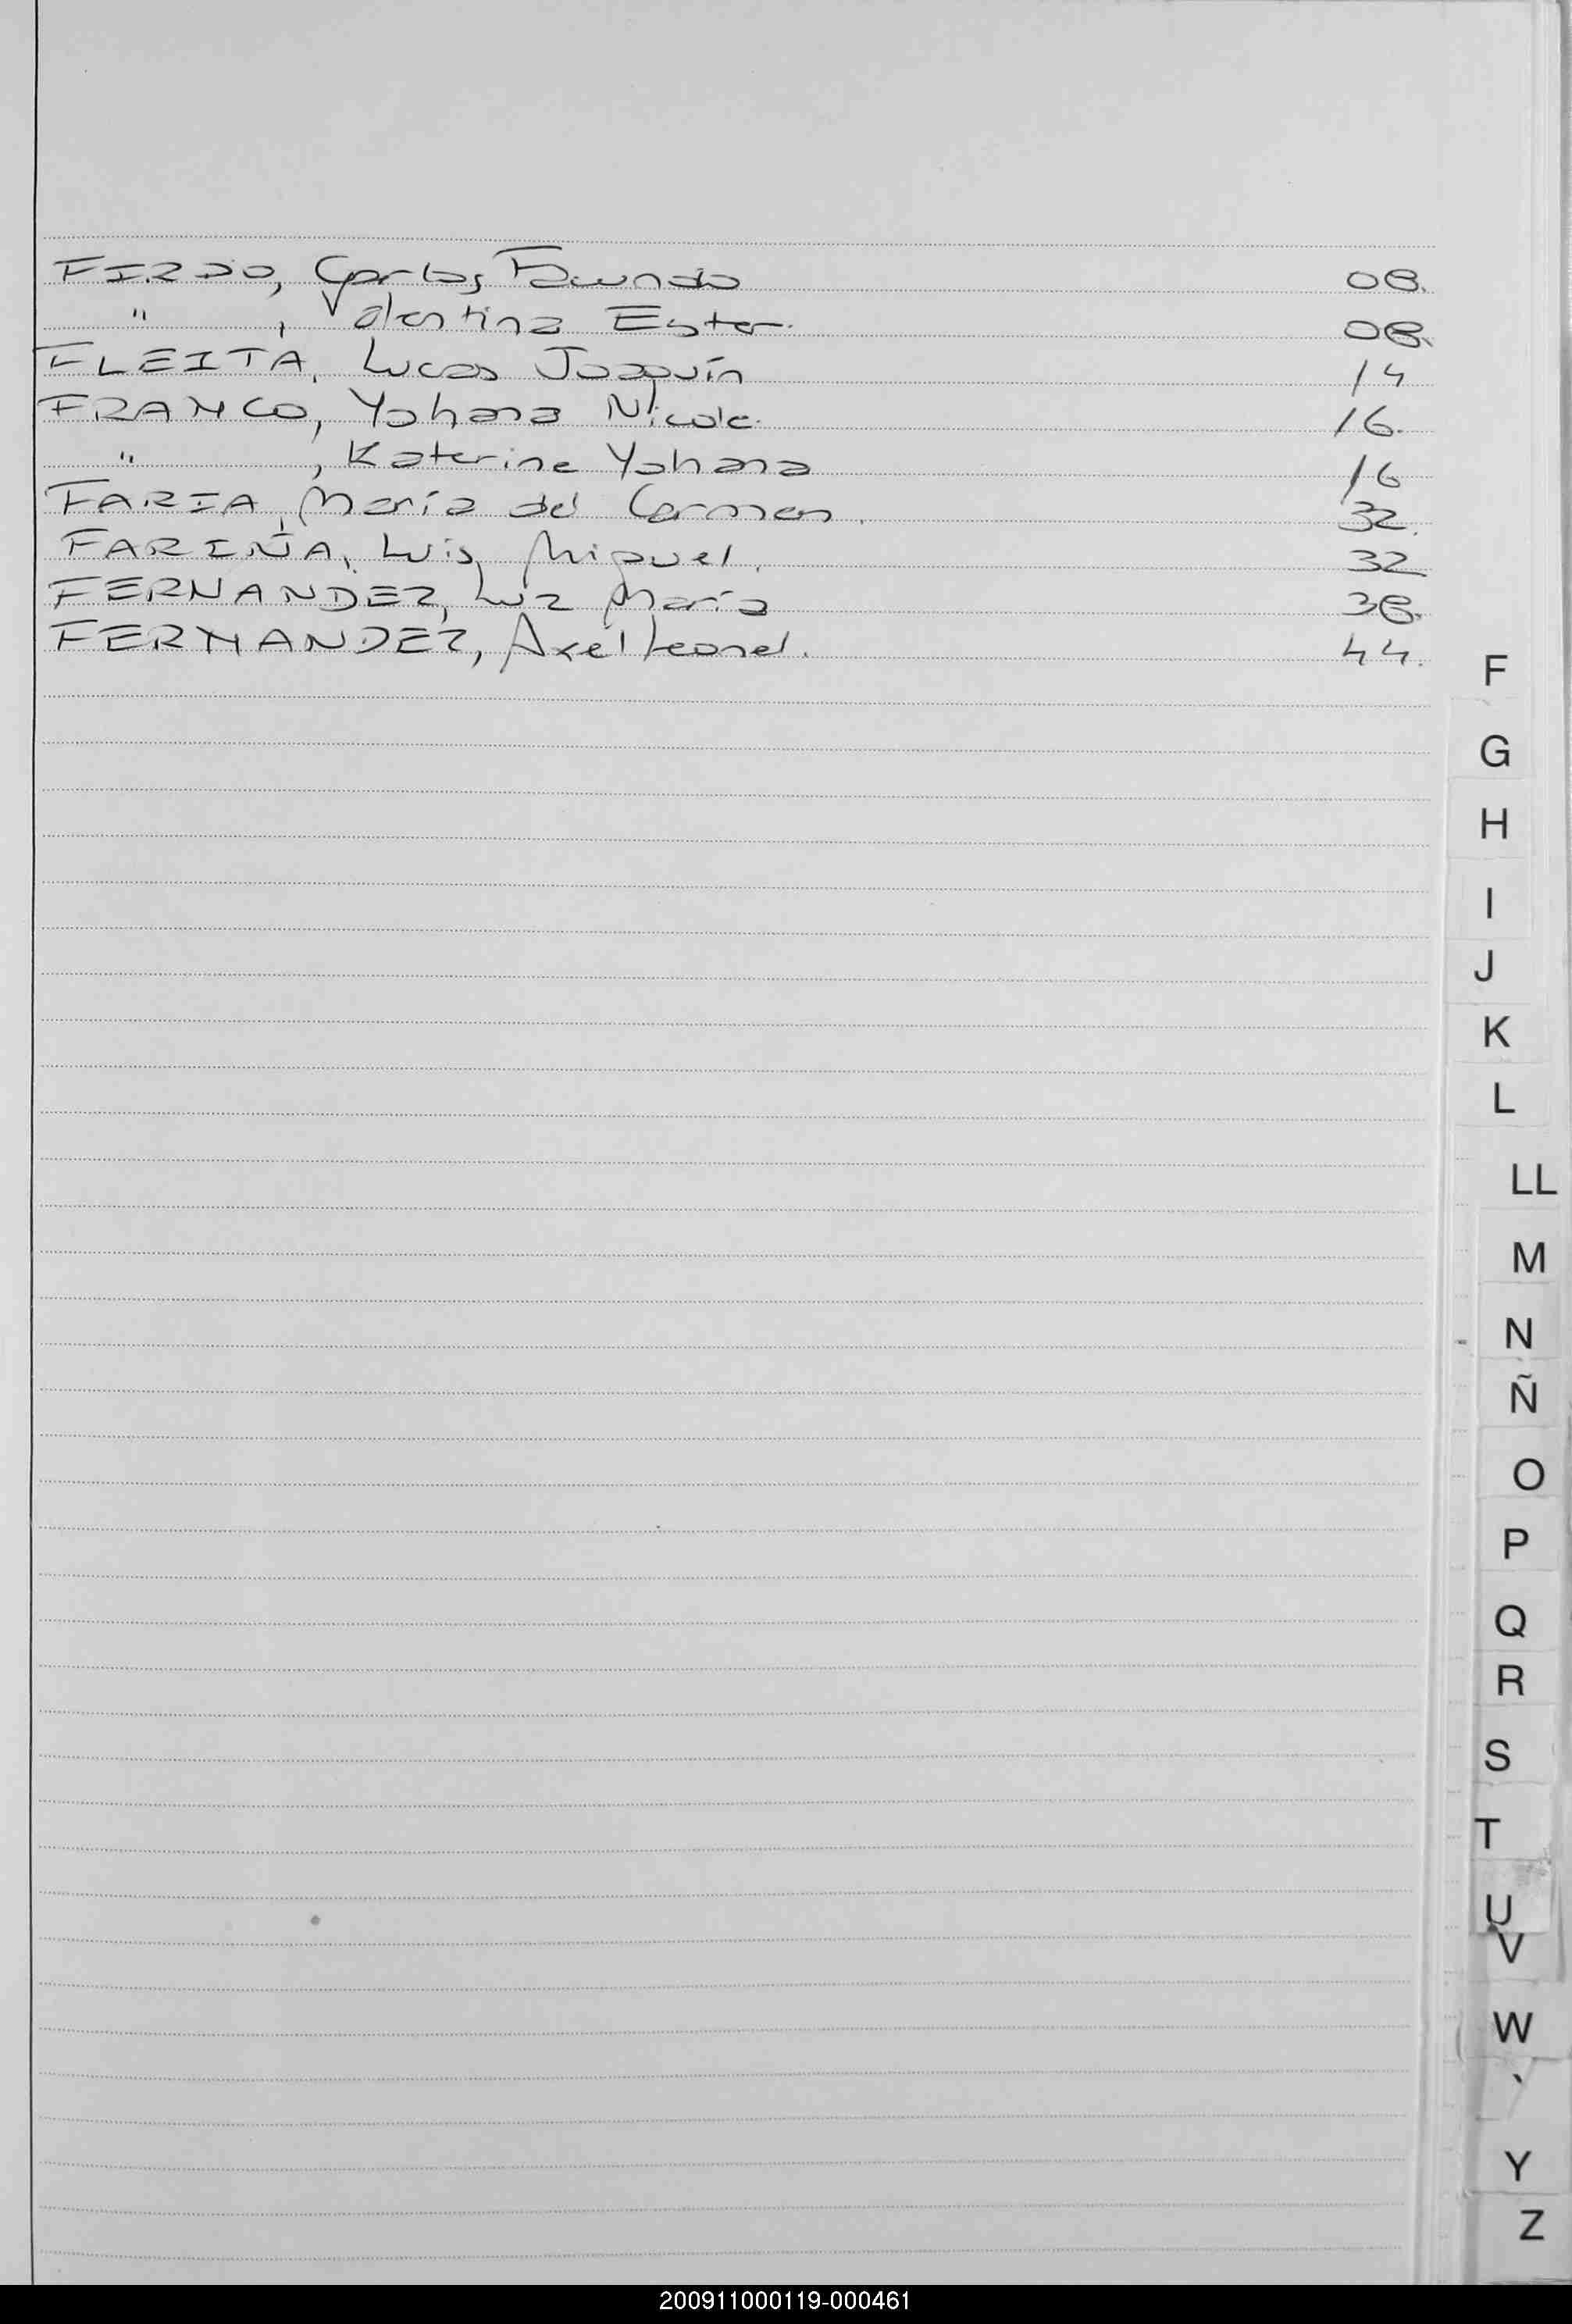 FIRDO, Carlos Facundo 08.
" , Valentina Ester. 08.
FLEITA, Lucas Joaquín 14
FRANCO, Yohana Nicole. 16.
" , Katerine Yohana 16
FARIA, María del Carmen. 32.
FARIÑA, Luis Miguel. 32
FERNANDEZ, Luz María 38.
FERNANDEZ, Axel Leonel. 44.
F
G
H
I
J
K
L
LL
M
N
Ñ
O
P
Q
R
S
T
U
V
W
Y
Z
200911000119-000461